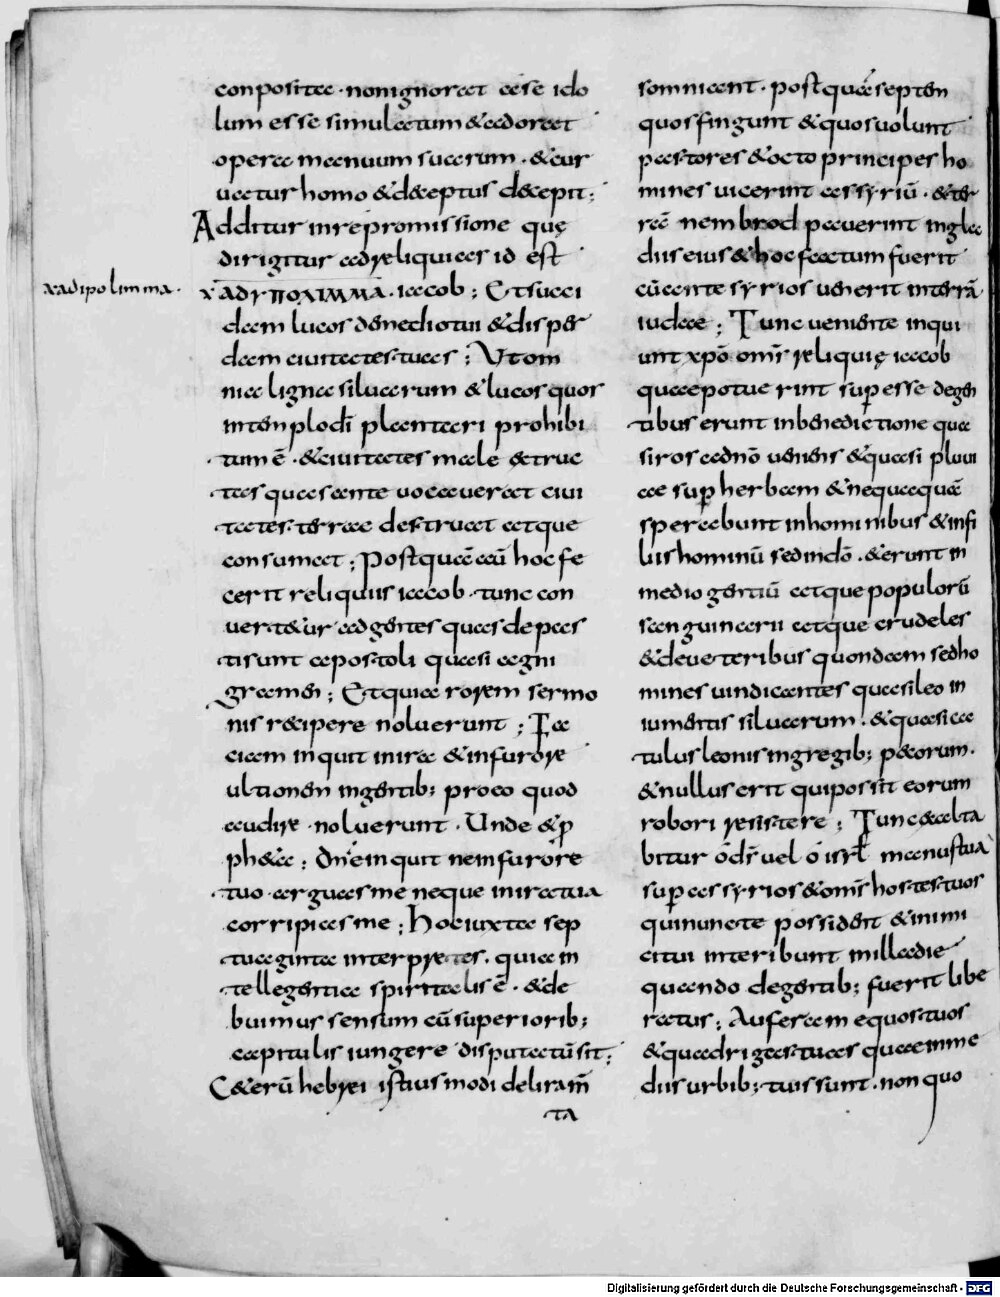 xadipolimma.
conposita · non ignorat a se ido
lum esse simulatum & adorat
opera manuum suarum · & cur
uatur homo & deceptus decepit;
Additur in repromissione que
dirigitur ad reliquias id est
χΑΔΥΠΟΛΙΜΜΑ. iacob; Et succi
dam lucos de medio tui & disper
dam ciuitates tuas; Ut om
nia ligna siluarum & lucos quos
in templo dī plantari prohibi
tum ē · & ciuitates male
tas quas ante uocauerat ciui
tates terrae destruat atque
consumat; Postquā eā hoc fe
cerit reliquiis iacob · tunc con
uertetur ad gentes quas depas
ti sunt apostoli quasi agni
gramen; Et quia rorem sermo
nis recipere noluerunt; Fa
ciam inquit in ira & in furore
ultionem in gentib; pro eo quod
audire noluerunt · Unde & p
ph&a; Dn̄e inquit ne in furore
tuo arguas me neque in ira tua
corripias me; Hoc iuxta sep
tuaginta interpretes · quia in
tellegentia spiritalis ē · & de
buimus sensum cū superiorib;
capitulis iungere disputatū sit;
C&erū hebrei istius modi deliram̄
ta
somniant · postquā septem
quos fingunt & quos uolunt
pastores & octo principes ho
mines uicerint assyriū · & ter
rā nembrod pauerint in gla
diis eius & hoc factum fuerit
cū ante syrios uenerit in terrā
iudaae; Tunc ueniente inqui
unt xp̄o om̄s reliquię iacob
quae potuerint superesse de gen
tibus erunt in benedictione qua
si ros a dn̄o ueniens & quasi pluui
ae sup herbam & nequaquā
sperabunt in hominibus & in fi
liis hominū sed in dn̄o · & erunt in
medio gentiū atque populorū
sanguinarii atque crudeles
& deueteribus quondam sed ho
mines uindicantes quasi leo in
iumentis siluarum · & quasi ca
tulus leonis in gregib; pecorum ·
& nullus erit qui possit eorum
robori resistere; Tunc exalta
bitur ō dr̄ uel ō isrl̄ manus tua
sup assyrios & om̄s hostes tuos
qui nunc te possident & inimi
ci tui interibunt · illa die
quando de gentib; fuerit libe
ratus; Auferam equos tuos
& quadrigas tuas quae in me
diis urbib; tuis sunt · non quo
Digitalisierung gefördert durch die Deutsche Forschungsgemeinschaft - DFG